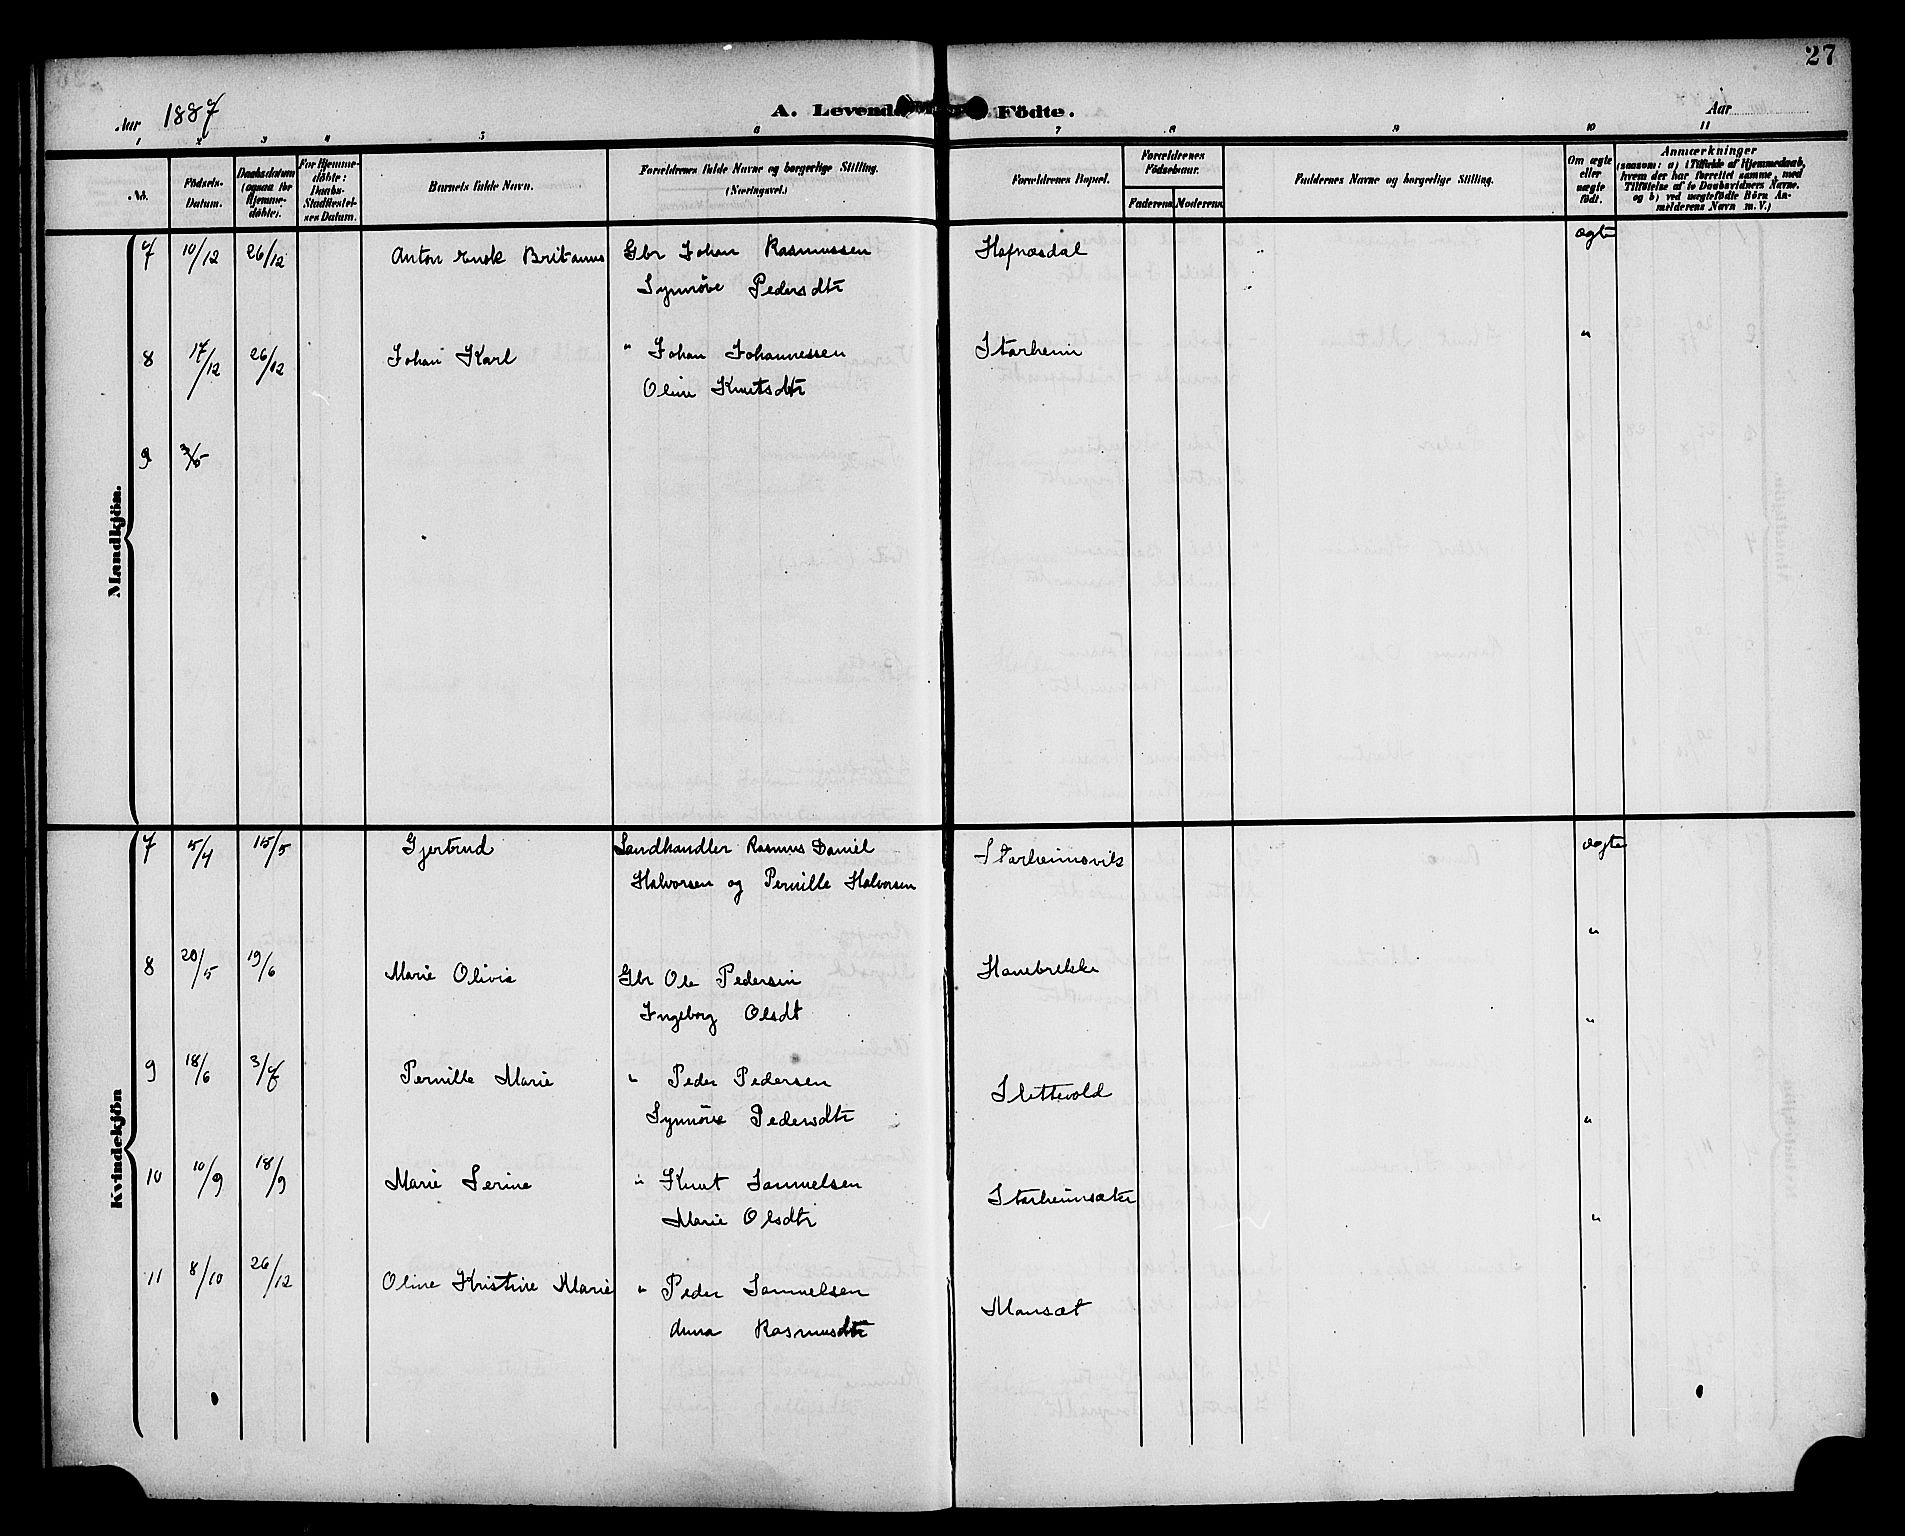 27
Aar 1887
A. Levende Födte.
Aar
1 2 3 4 5 6 7 8 9 10 11
No.
Födsels-Datum.
Daabsdatum (ogsaa for Hjemme-döbte).
For Hjemme-döbte: Daabs-Stadfæstel-ses Datum.
Barnets fulde Navn.
Forældrenes fulde Navne og borgerlige Stilling. (Næringsvei.)
Forældrenes Bopæl.
Forældrenes Födselsaar.
Faderens. Moderens.
Faddernes Navne og borgerlige Stilling.
Om ægte eller uægte födt.
Anmærkninger
(saasom: a) i Tilfælde af Hjemmedaab, hvem der har forrettet samme, med Tilföielse af to Daabsvidners Navne, og b) ved uægtefödte Börn An-melderens Navn m. V.)
Mandkjön.
7 10/12 26/12 Anton Enok Britanus Gbr Johan Rasmussen Hofnæsdal ægte
Synnöve Pedersdtr
8 17/12 26/12 Johan Karl " Johan Johannessen Starheim "
Oline Knutsdtr
9 3/5
Kvindekjön
7 5/4 15/5 Gjertrud Landhandler Rasmus Daniel Starheimsvik ægte
Halvorsen og Pernille Halvorsen
8 20/5 19/6 Marie Olivie Gbr Ole Pedersen Hanebrekke "
Ingeborg Olsdt
9 18/6 3/7 Pernille Marie " Peder Pedersen Slettevold "
Synnöve Pedersdtr
10 10/9 18/9 Marie Serine " Knut Samuelsen Starheimsæter "
Marie Olsdtr
11 8/10 26/12 Oline Kristine Marie " Peder Samuelsen Maurset "
Anna Rasmusdtr